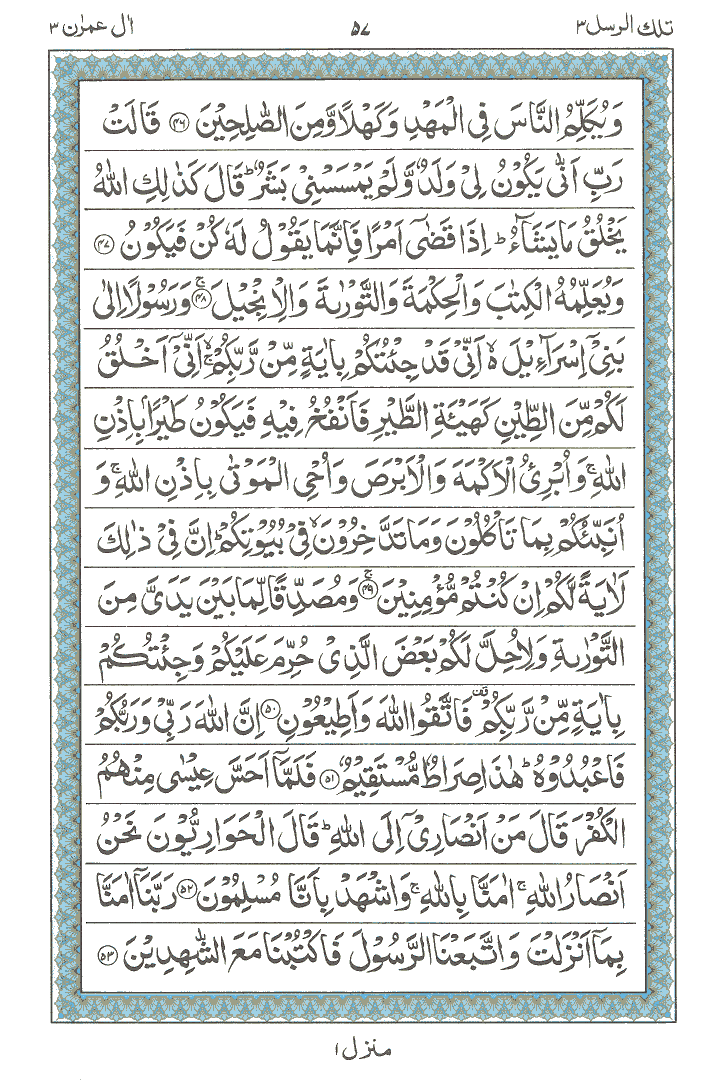 تلك الرسل ٣
٥٧
اٰل عمرٰن ٣
وَيُكَلِّمُ النَّاسَ فِى الْمَهْدِ وَكَهْلًا وَّمِنَ الصّٰلِحِيْنَ ﴿۴۶﴾ قَالَتْ
رَبِّ اَنّٰى يَكُوْنُ لِىْ وَلَدٌ وَّلَمْ يَمْسَسْنِىْ بَشَرٌ ؕ قَالَ كَذٰلِكِ اللّٰهُ
يَخْلُقُ مَا يَشَآءُ ؕ اِذَا قَضٰٓى اَمْرًا فَاِنَّمَا يَقُوْلُ لَهٗ كُنْ فَيَكُوْنُ ﴿۴۷﴾
وَيُعَلِّمُهُ الْكِتٰبَ وَالْحِكْمَةَ وَالتَّوْرٰىةَ وَالْاِنْجِيْلَ ﴿۴۸﴾ۚ وَرَسُوْلًا اِلٰى
بَنِىْٓ اِسْرَآءِيْلَ ۙ اَنِّىْ قَدْ جِئْتُكُمْ بِاٰيَةٍ مِّنْ رَّبِّكُمْ ۙۚ اَنِّىْٓ اَخْلُقُ
لَكُمْ مِّنَ الطِّيْنِ كَهَيْئَةِ الطَّيْرِ فَاَنْفُخُ فِيْهِ فَيَكُوْنُ طَيْرًۢا بِاِذْنِ
اللّٰهِ ۚ وَاُبْرِئُ الْاَكْمَهَ وَالْاَبْرَصَ وَاُحْىِ الْمَوْتٰى بِاِذْنِ اللّٰهِ ۚ وَ
اُنَبِّئُكُمْ بِمَا تَاْكُلُوْنَ وَمَا تَدَّخِرُوْنَ ۙ فِىْ بُيُوْتِكُمْ ؕ اِنَّ فِىْ ذٰلِكَ
لَاٰيَةً لَّكُمْ اِنْ كُنْتُمْ مُّؤْمِنِيْنَ ﴿۴۹﴾ۚ وَمُصَدِّقًا لِّمَا بَيْنَ يَدَىَّ مِنَ
التَّوْرٰىةِ وَلِاُحِلَّ لَكُمْ بَعْضَ الَّذِىْ حُرِّمَ عَلَيْكُمْ وَجِئْتُكُمْ
بِاٰيَةٍ مِّنْ رَّبِّكُمْ ۫ فَاتَّقُوا اللّٰهَ وَاَطِيْعُوْنِ ﴿۵۰﴾ اِنَّ اللّٰهَ رَبِّىْ وَرَبُّكُمْ
فَاعْبُدُوْهُ ؕ هٰذَا صِرَاطٌ مُّسْتَقِيْمٌ ﴿۵۱﴾ فَلَمَّآ اَحَسَّ عِيْسٰى مِنْهُمُ
الْكُفْرَ قَالَ مَنْ اَنْصَارِىْٓ اِلَى اللّٰهِ ؕ قَالَ الْحَوَارِيُّوْنَ نَحْنُ
اَنْصَارُ اللّٰهِ ۚ اٰمَنَّا بِاللّٰهِ ۚ وَاشْهَدْ بِاَنَّا مُسْلِمُوْنَ ﴿۵۲﴾ رَبَّنَآ اٰمَنَّا
بِمَآ اَنْزَلْتَ وَاتَّبَعْنَا الرَّسُوْلَ فَاكْتُبْنَا مَعَ الشّٰهِدِيْنَ ﴿۵۳﴾
منزل ١